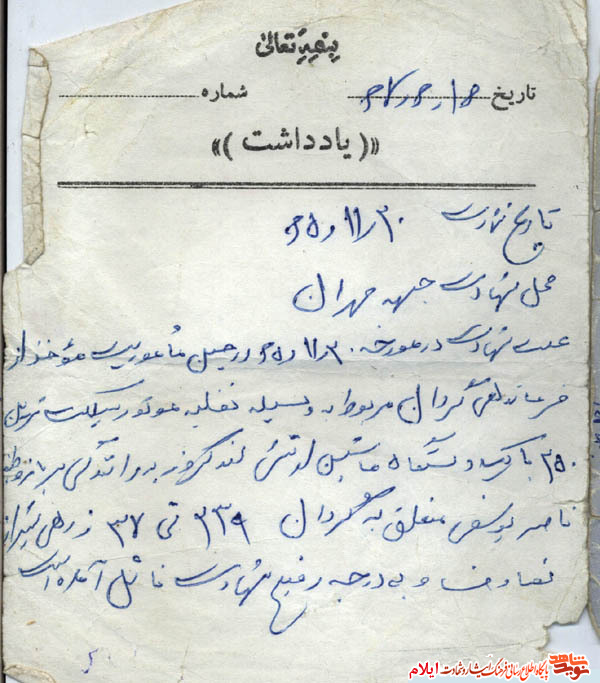 بسمه تعالی
تاریخ ۶۷،۲،۱۶ شماره
«( یادداشت )»
تاریخ شهادت ۶۵/۱۱/۳۰
محل شهادت جبهه مهران
علت شهادت در مورخه ۶۵/۱۱/۳۰ در حین مأموریت مؤخذ از
فرماندهی گردان مربوطه وسیله نقلیه موتور سیکلت تریل
۲۵۰ با یک دستگاه ماشین لندکروز به رانندگی سرباز وظیفه
ناصر یوسفی متعلق به گردان ۲۳۹ تی ۳۷ زرهی شیراز
تصادف و به درجه رفیع شهادت نائل آمده است
نوید شاهد
پایگاه اطلاع رسانی فرهنگ ایثار و شهادت ایلام